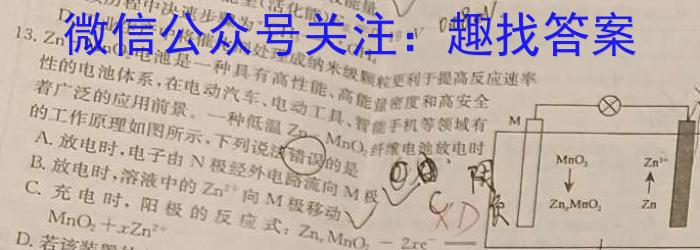 微信公众号关注：趣找答案
D.
处理成纳米级颗粒更利于提高反应速率
13. Zn-MnO₂电池是一种具有高性能、高能量密度和高安全
性的电池体系,在电动汽车、电动工具、智能手机等领域有
着广泛的应用前景。一种低温 Zn-MnO₂ 纤维电池放电时
的工作原理如图所示,下列说法错误的是
A. 放电时,电子由 N 极经外电路流向 M 极
B. 放电时,溶液中的 Zn²⁺ 向 M 极移动
C. 充电时,阳极的反应式: ZnₓMnO₂ − 2xe⁻ ══
MnO₂+xZn²⁺
D. 若该装置
M
MnO₂
ZnₓMnO₂
Zn²⁺
Zn